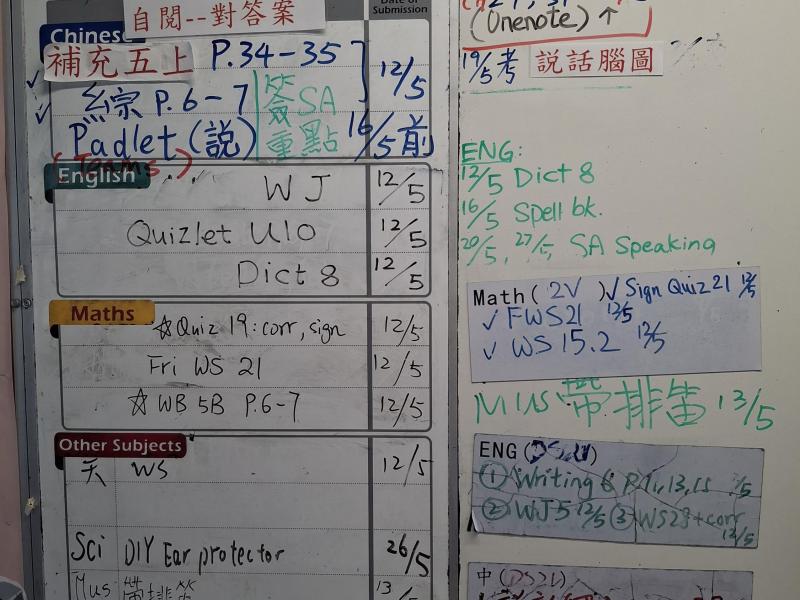 自閱--對答案
Date of Submission
Chinese
補充五上 P.34-35
12/5
綜 P.6-7 簽SA
Padlet (說) 重點 16/5前
(Teams)
English
WJ 12/5
Quizlet U10 12/5
Dict 8 12/5
Maths
☆Quiz 19: corr, sign 12/5
Fri WS 21 12/5
☆ WB 5B P.6-7 12/5
Other Subjects
WS 12/5
Sci DIY Ear protector 26/5
Mus 帶排笛 13
(Onenote) ↑
19/5考 說話腦圖
ENG:
12/5 Dict 8
16/5 Spell bk.
20/5, 27/5, SA Speaking
Math( 2V )✓Sign Quiz 21 12/5
✓ FWS21 12/5
✓ WS 15.2 12/5
Mus 帶排笛 13/5
ENG(DS21)
① Writing 6
② WJ5 12/5 ③ WS28+corr
12/5
中(DS21)